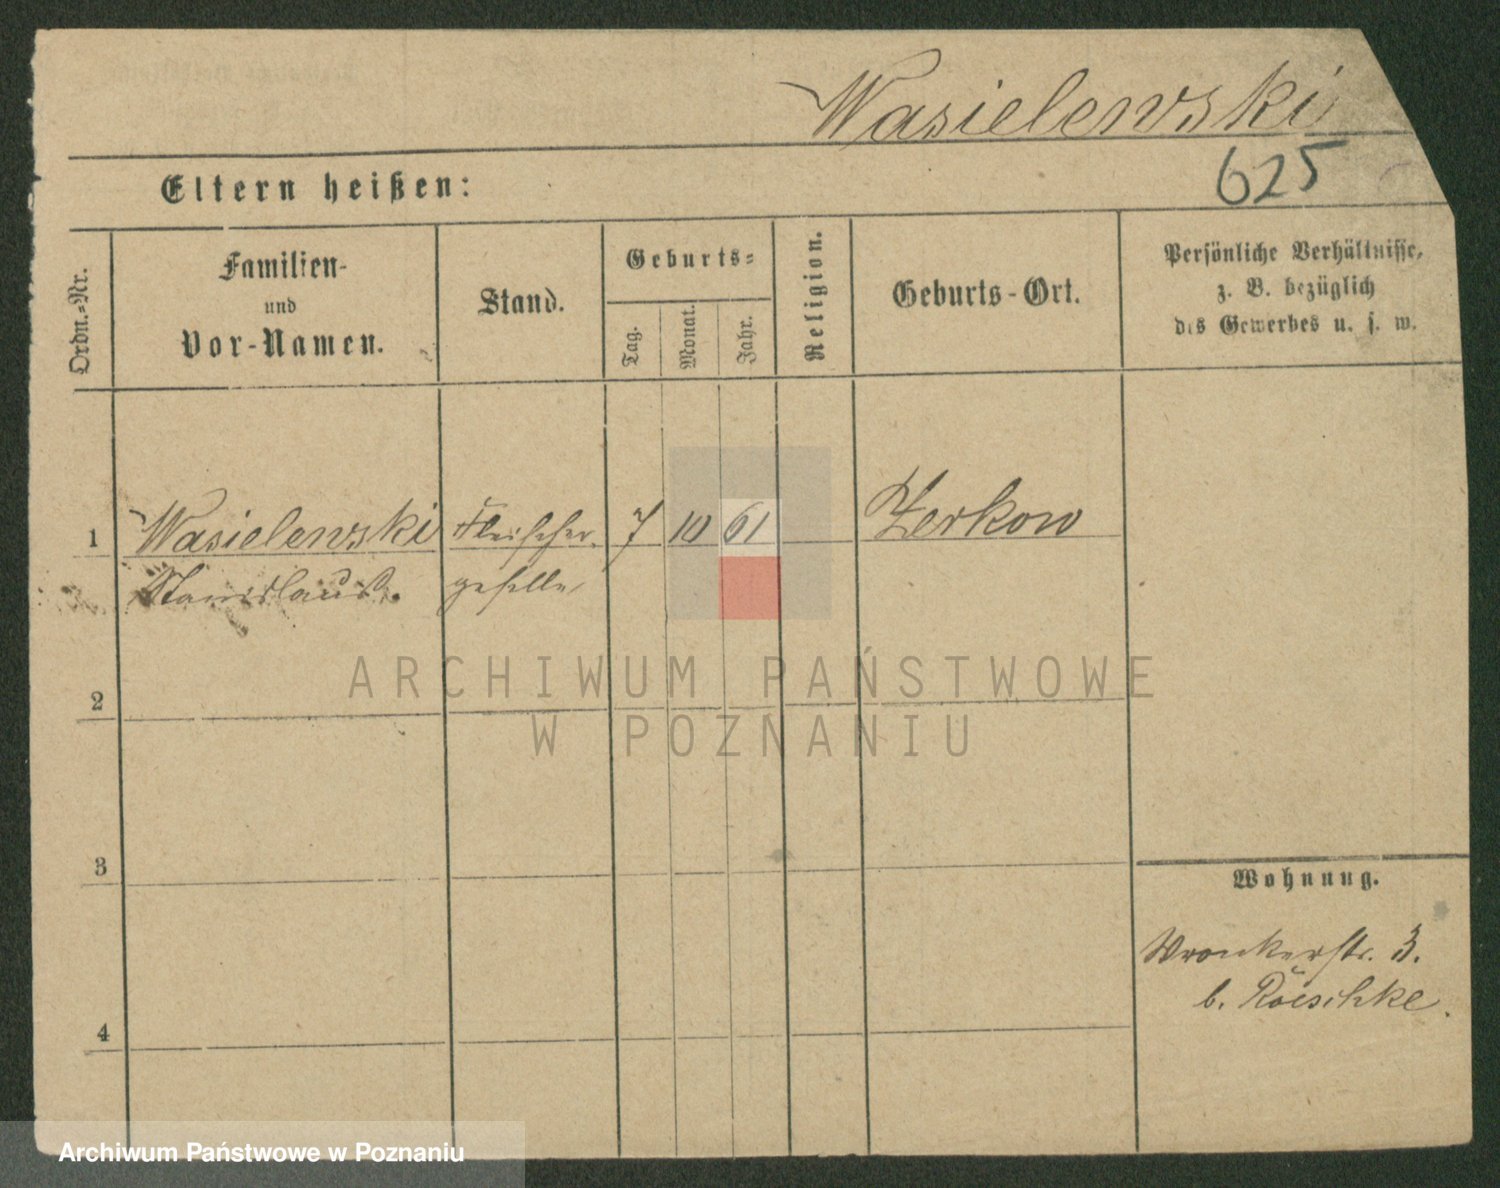 Wasielewski
625
Eltern heißen:
Ordn.-Nr.
Familien-
und
Vor-Namen.
Stand.
Geburts-
Tag.
Monat.
Jahr.
Religion.
Geburts-Ort.
Persönliche Verhältnisse,
z. B. bezüglich
des Gewerbes u. s. w.
1 Wasielewski Fleischer- 7 10 61 Zerkow
Stanislaus. geselle
2
3
4
Wohnung.
Wronkerstr. 3.
b. Röeschke.
ARCHIWUM PAŃSTWOWE
W POZNANIU
Archiwum Państwowe w Poznaniu